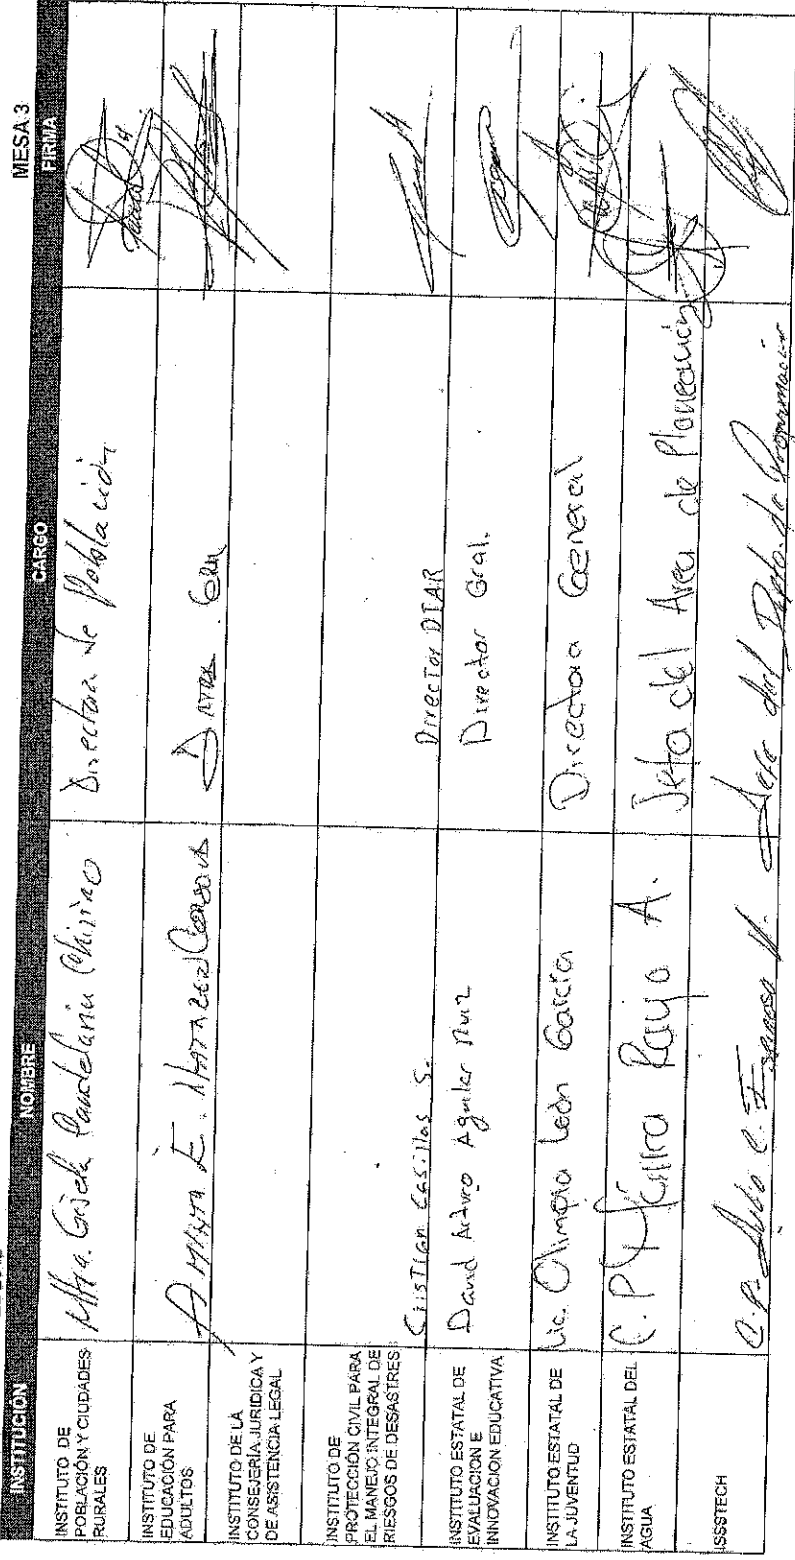 MESA 3
INSTITUCIÓN NOMBRE CARGO FIRMA
INSTITUTO DE
POBLACIÓN Y CIUDADES
RURALES
Mtra. Gisela Candelaria Chirino Directora de Población
INSTITUTO DE
EDUCACIÓN PARA
ADULTOS
E.
INSTITUTO DE LA
CONSEJERÍA JURIDICA Y
DE ASISTENCIA LEGAL
INSTITUTO DE
PROTECCIÓN CIVIL PARA
EL MANEJO INTEGRAL DE
RIESGOS DE DESASTRES
Cristian Casillas S. Director DIAR
INSTITUTO ESTATAL DE
EVALUACION E
INNOVACION EDUCATIVA
David Arturo Aguilar Ruiz Director Gral.
INSTITUTO ESTATAL DE
LA JUVENTUD
Lic. Olimpia León García Directora General
INSTITUTO ESTATAL DEL
AGUA
C.P. Rayo A. Jefa del Area de Planeación
ISSSTECH
C.P. C. Espinosa Depto. de Programación